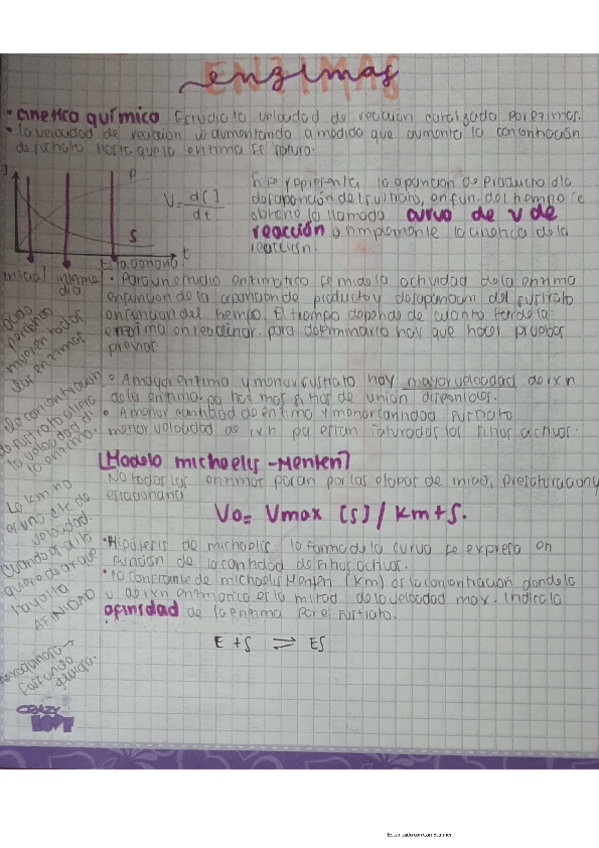 enzimas
• Cinetica químico Estudia la velocidad de reacción catalizada por enzimas.
• La velocidad de reacción va aumentando a medida que aumenta la concentración
de sustrato hasta que la enzima se satura.
P
S
t
V = d[ ] / dt
Si se representa la aparición de producto o la
desaparición del sustrato, en fun. del tiempo se
obtiene la llamada curva de v de
reacción o simplemente la cinetica de la
reacción.
Inicial interme
dio
Estacionaria
• Para un estudio enzimatico se mide la actividad de la enzima
en función de la aparición de producto y desaparición del sustrato
en función del tiempo. El tiempo depende de cuanto tarde la
enzima en reaccionar. para determinarlo hay que hacer pruebas
previas
• A mayor enzima y menor sustrato hay mayor velocidad de rxn
de la enzima. pq hay mas sitios de unión disponibles.
• A menor cantidad de enzima y menor cantidad sustrato
menor velocidad de rxn pq estan saturados los sitios activos.
[Modelo michaelis - Menten]
No todas las enzimas pasan por las etapas de inicio, presaturación y
estacionaria
Vo = Vmax [S] / Km + S.
• Hipótesis de michaelis: la forma de la curva se expresa en
función de la cantidad de sitios activos.
• La constante de michaelis Menten (Km) es la concentración donde la
v de rxn enzimatica es la mitad de la velocidad max. Indica la
afinidad de la enzima por el sustrato.
E + S ⇌ ES
La concentración
de sustrato afecta
la velocidad d
la enzima.
La km no
es una cte de
velocidad.
Cuando es alta
quiere decir que
hay baja
AFINIDAD
CRAZY
LOVE
Escaneado con CamScanner